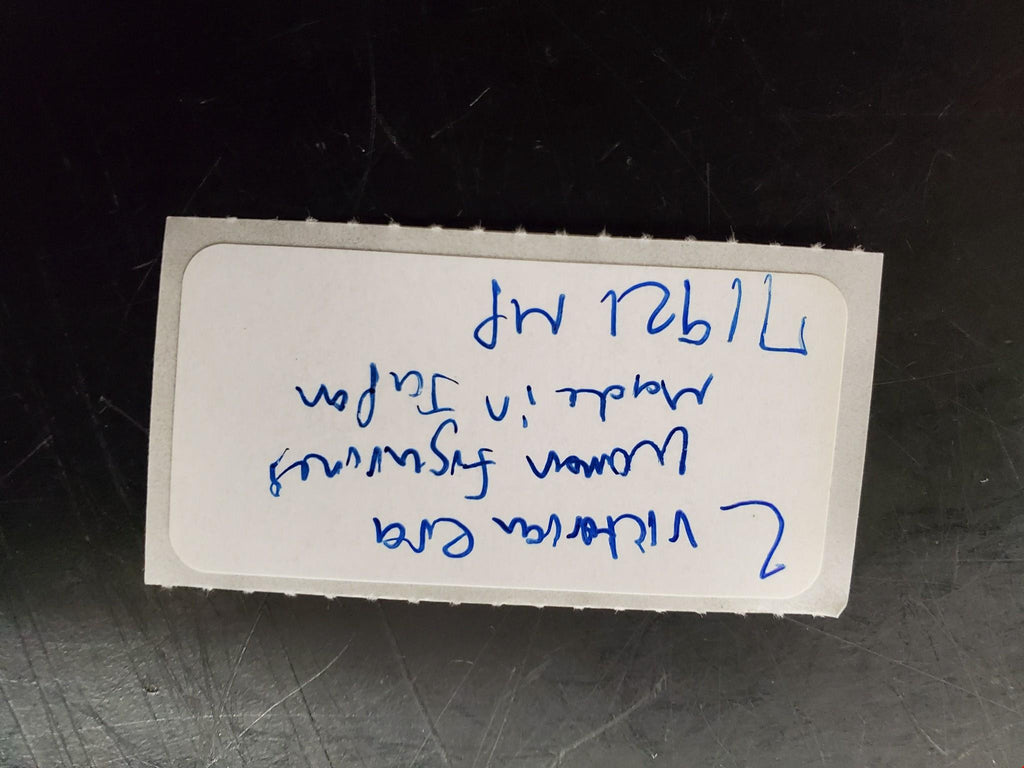 2 Victorian Era
Women figurines
Made in Japan
71921 MP